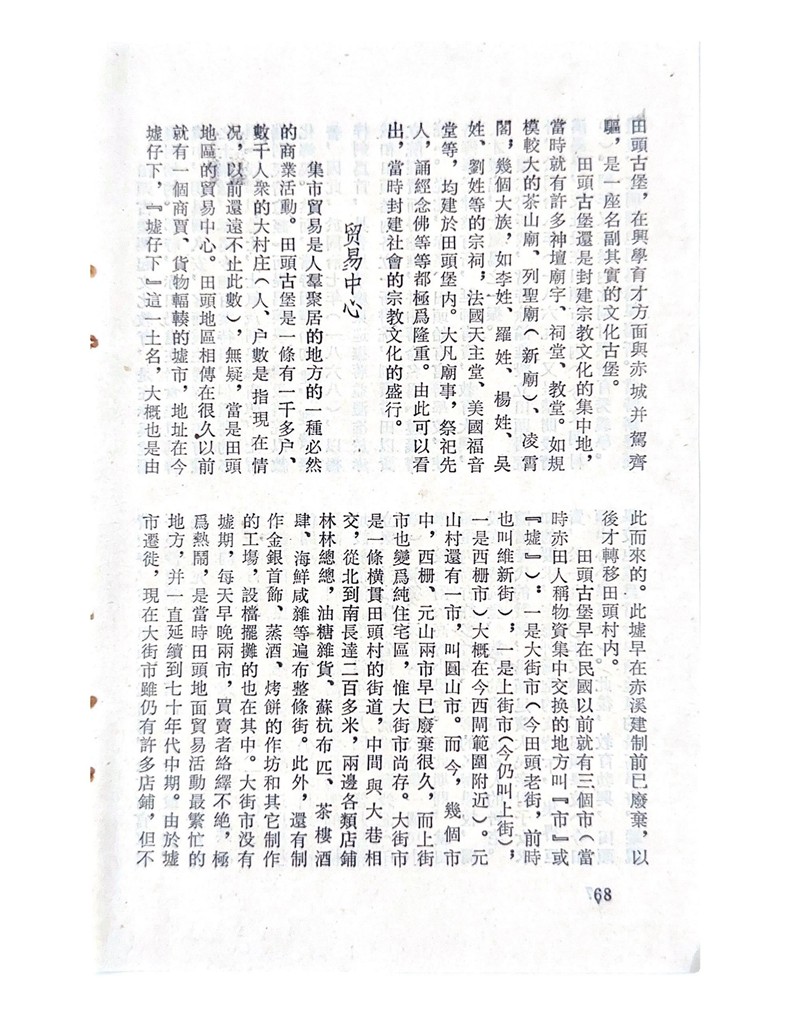 田頭古堡，在興學育才方面與赤城并駕齊
驅，是一座名副其實的文化古堡。
田頭古堡還是封建宗教文化的集中地，
當時就有許多神壇廟字、祠堂、教堂。如規
模較大的茶山廟、列聖廟（新廟）、凌霄
閣，幾個大族，如李姓、羅姓、楊姓、吳
姓、劉姓等的宗祠，法國天主堂、美國福音
堂等，均建於田頭堡内。大凡廟事，祭祀先
人，誦經念佛等等都極爲隆重。由此可以看
出，當時封建社會的宗教文化的盛行。
贸易中心
集市貿易是人羣聚居的地方的一種必然
的商業活動。田頭古堡是一條有一千多户、
數千人衆的大村庄（人、户數是指現在情
况，以前還遠不止此數），無疑，當是田頭
地區的貿易中心。田頭地區相傳在很久以前
就有一個商賈、貨物輻輳的墟市，地址在今
墟仔下，『墟仔下』這一土名，大概也是由
此而來的。此墟早在赤溪建制前已廢棄，以
後才轉移田頭村内。
田頭古堡早在民國以前就有三個市（當
時赤田人稱物資集中交換的地方叫『市』或
『墟』），一是大街市（今田頭老街，前時
也叫維新街），一是上街市（今仍叫上街），
一是西栅市）大概在今西閘範圍附近）。元
山村還有一市，叫圓山市。而今，幾個市
中，西栅、元山兩市早已廢棄很久，而上街
市也變爲純住宅區，惟大街市尚存。大街市
是一條橫貫田頭村的街道，中間與大巷相
交，從北到南長達二百多米，兩邊各類店鋪
林林總總，油糖雜貨、蘇杭布匹、茶樓酒
肆、海鮮咸雜等遍布整條街。此外，還有制
作金銀首飾、蒸酒、烤餅的作坊和其它制作
的工塲，設檔擺攤的也在其中。大街市没有
墟期，每天早晚兩市，買賣者絡繹不絶，極
爲熱鬧，是當時田頭地面貿易活動最繁忙的
地方，并一直延續到七十年代中期。由於墟
市遷徙，現在大街市雖仍有許多店鋪，但不
68